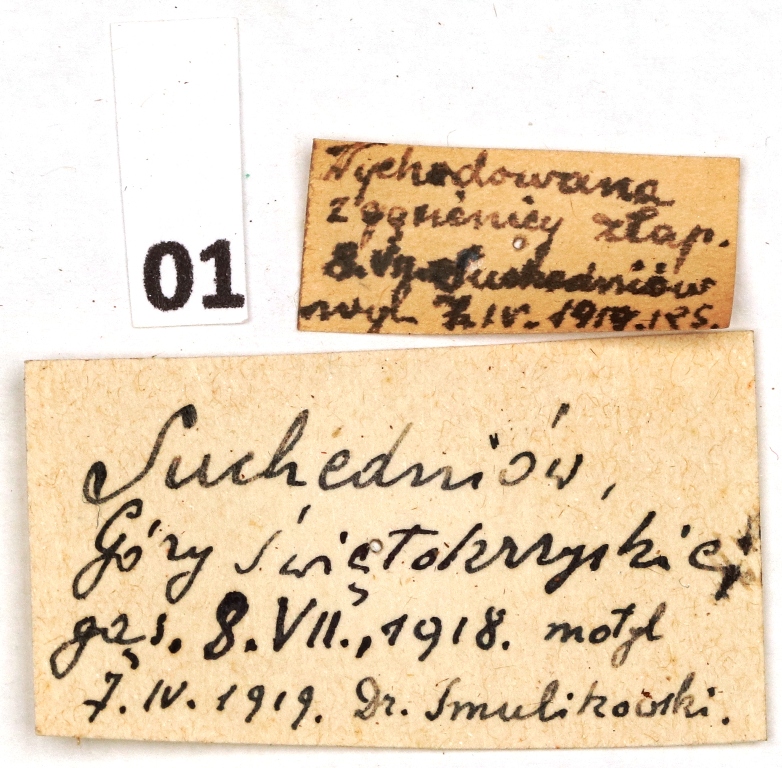 01
Wychodowana
z gąsienicy złap.
8.VII. Suchedniów
wyl 7.IV.1919.
Suchedniów,
Góry Świętokrzyskie,
gąs. 8.VII.,1918. motyl
7.IV.1919. Dr. Smulikowski.